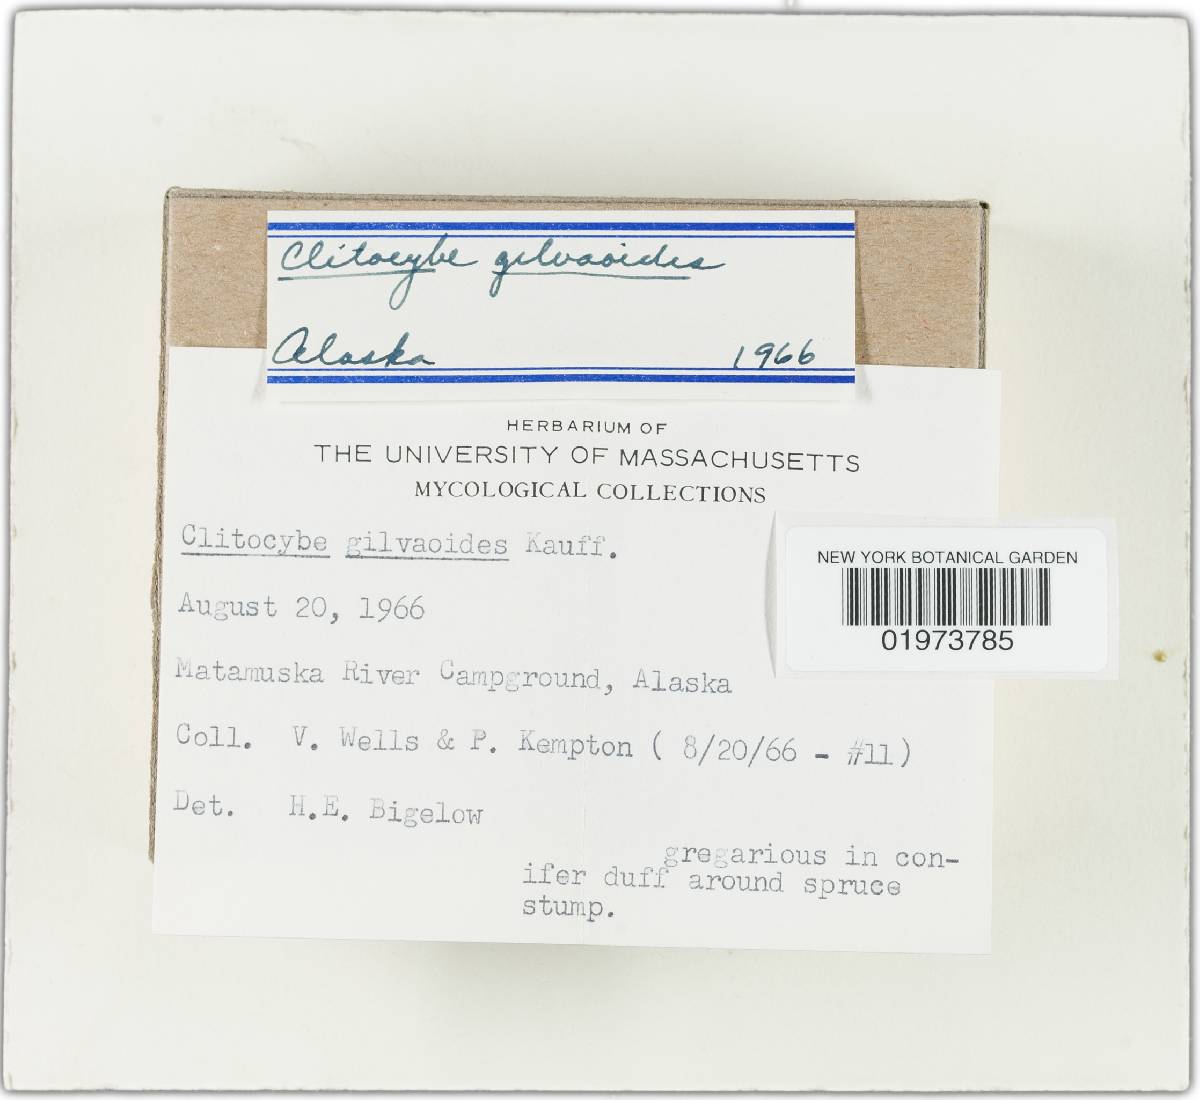 Clitocybe gilvaoides
Alaska 1966
HERBARIUM OF
THE UNIVERSITY OF MASSACHUSETTS
MYCOLOGICAL COLLECTIONS
Clitocybe gilvaoides Kauff.
August 20, 1966
Matamuska River Campground, Alaska
Coll. V. Wells & P. Kempton ( 8/20/66 - #11)
Det. H.E. Bigelow
gregarious in con-
ifer duff around spruce
stump.
NEW YORK BOTANICAL GARDEN
01973785